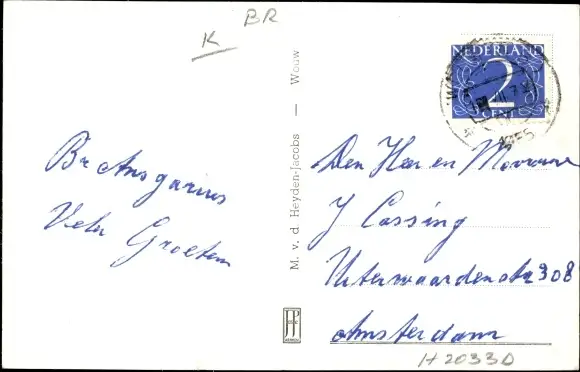 K BR
NEDERLAND
2
CENT
Br Ansgarius
Vele Groeten
M. v. d Heyden-Jacobs — Wouw
Den Heer en Mevrouw
J Cossing
Uiterwaardenstr 308
Amsterdam
H2033D